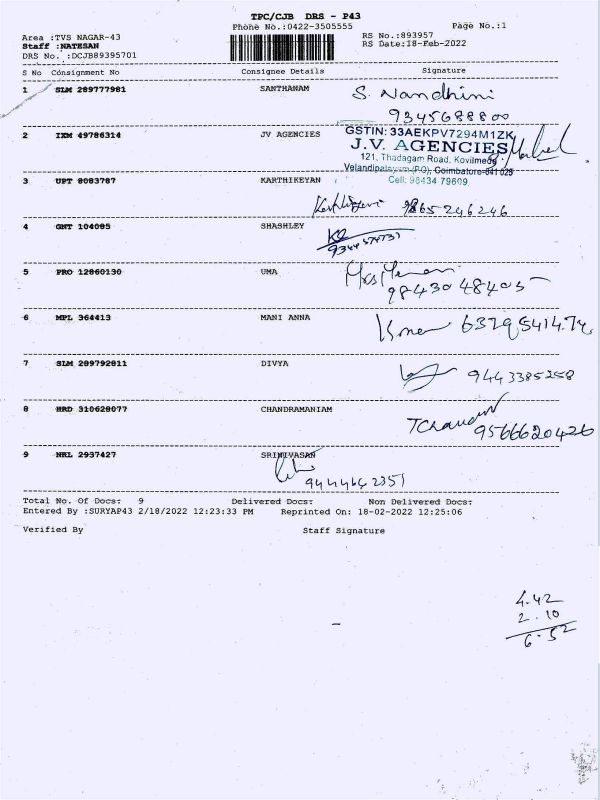 TPC/CJB DRS - P43
Phone No.:0422-3505555 Page No.:1
Area :TVS NAGAR-43 RS No.:893957
Staff :NATESAN RS Date:18-Feb-2022
DRS No. :DCJB89395701
S No Consignment No Consignee Details Signature
1 SLM 289777981 SANTHANAM S. Nandhini
9345688800
2 IXM 49786314 JV AGENCIES GSTIN: 33AEKPV7294M1ZK
J.V. AGENCIES
121, Thadagam Road, Kovilmedu,
Velandipalayam (P.O), Coimbatore-641 025
Cell: 98434 79609
3 UPT 8083787 KARTHIKEYAN
9865246246
4 GMT 104085 SHASHLEY
5 PRO 12860130 UMA
9843048405
6 MPL 364413 MANI ANNA
7 SLM 289792811 DIVYA 9443385258
8 HRD 310628077 CHANDRAMANIAM
9566620426
9 NKL 2937427 SRINIVASAN
9444642351
Total No. Of Docs: 9 Delivered Docs: Non Delivered Docs:
Entered By :SURYAP43 2/18/2022 12:23:33 PM Reprinted On: 18-02-2022 12:25:06
Verified By Staff Signature
4.42
2.10
6-52